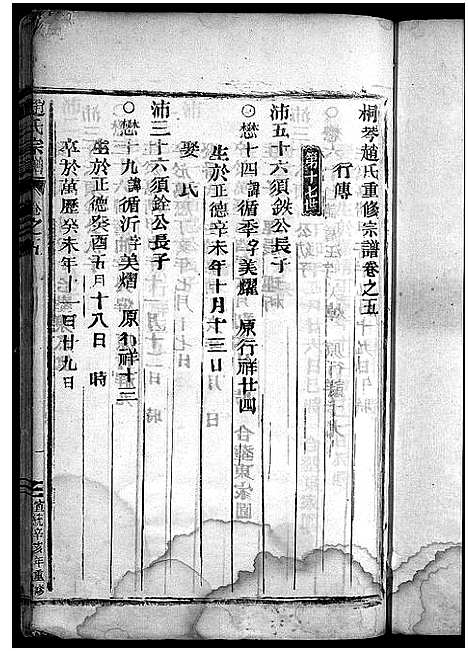 桐琴趙氏重修宗譜卷之五
行傳
第十七世
沛五十六須鉄公長子
○懋十四諱循季字美耀 原行祥廿四
生於正德辛未年十月十三日 時
娶氏
沛三十六須銓公長子
○懋十九諱循沂字美熠 原行祥十三
生於正德癸酉五月十八日 時
卒於萬歷癸未年十一月廿九日
趙氏宗譜 卷之五
宣統辛亥年重修